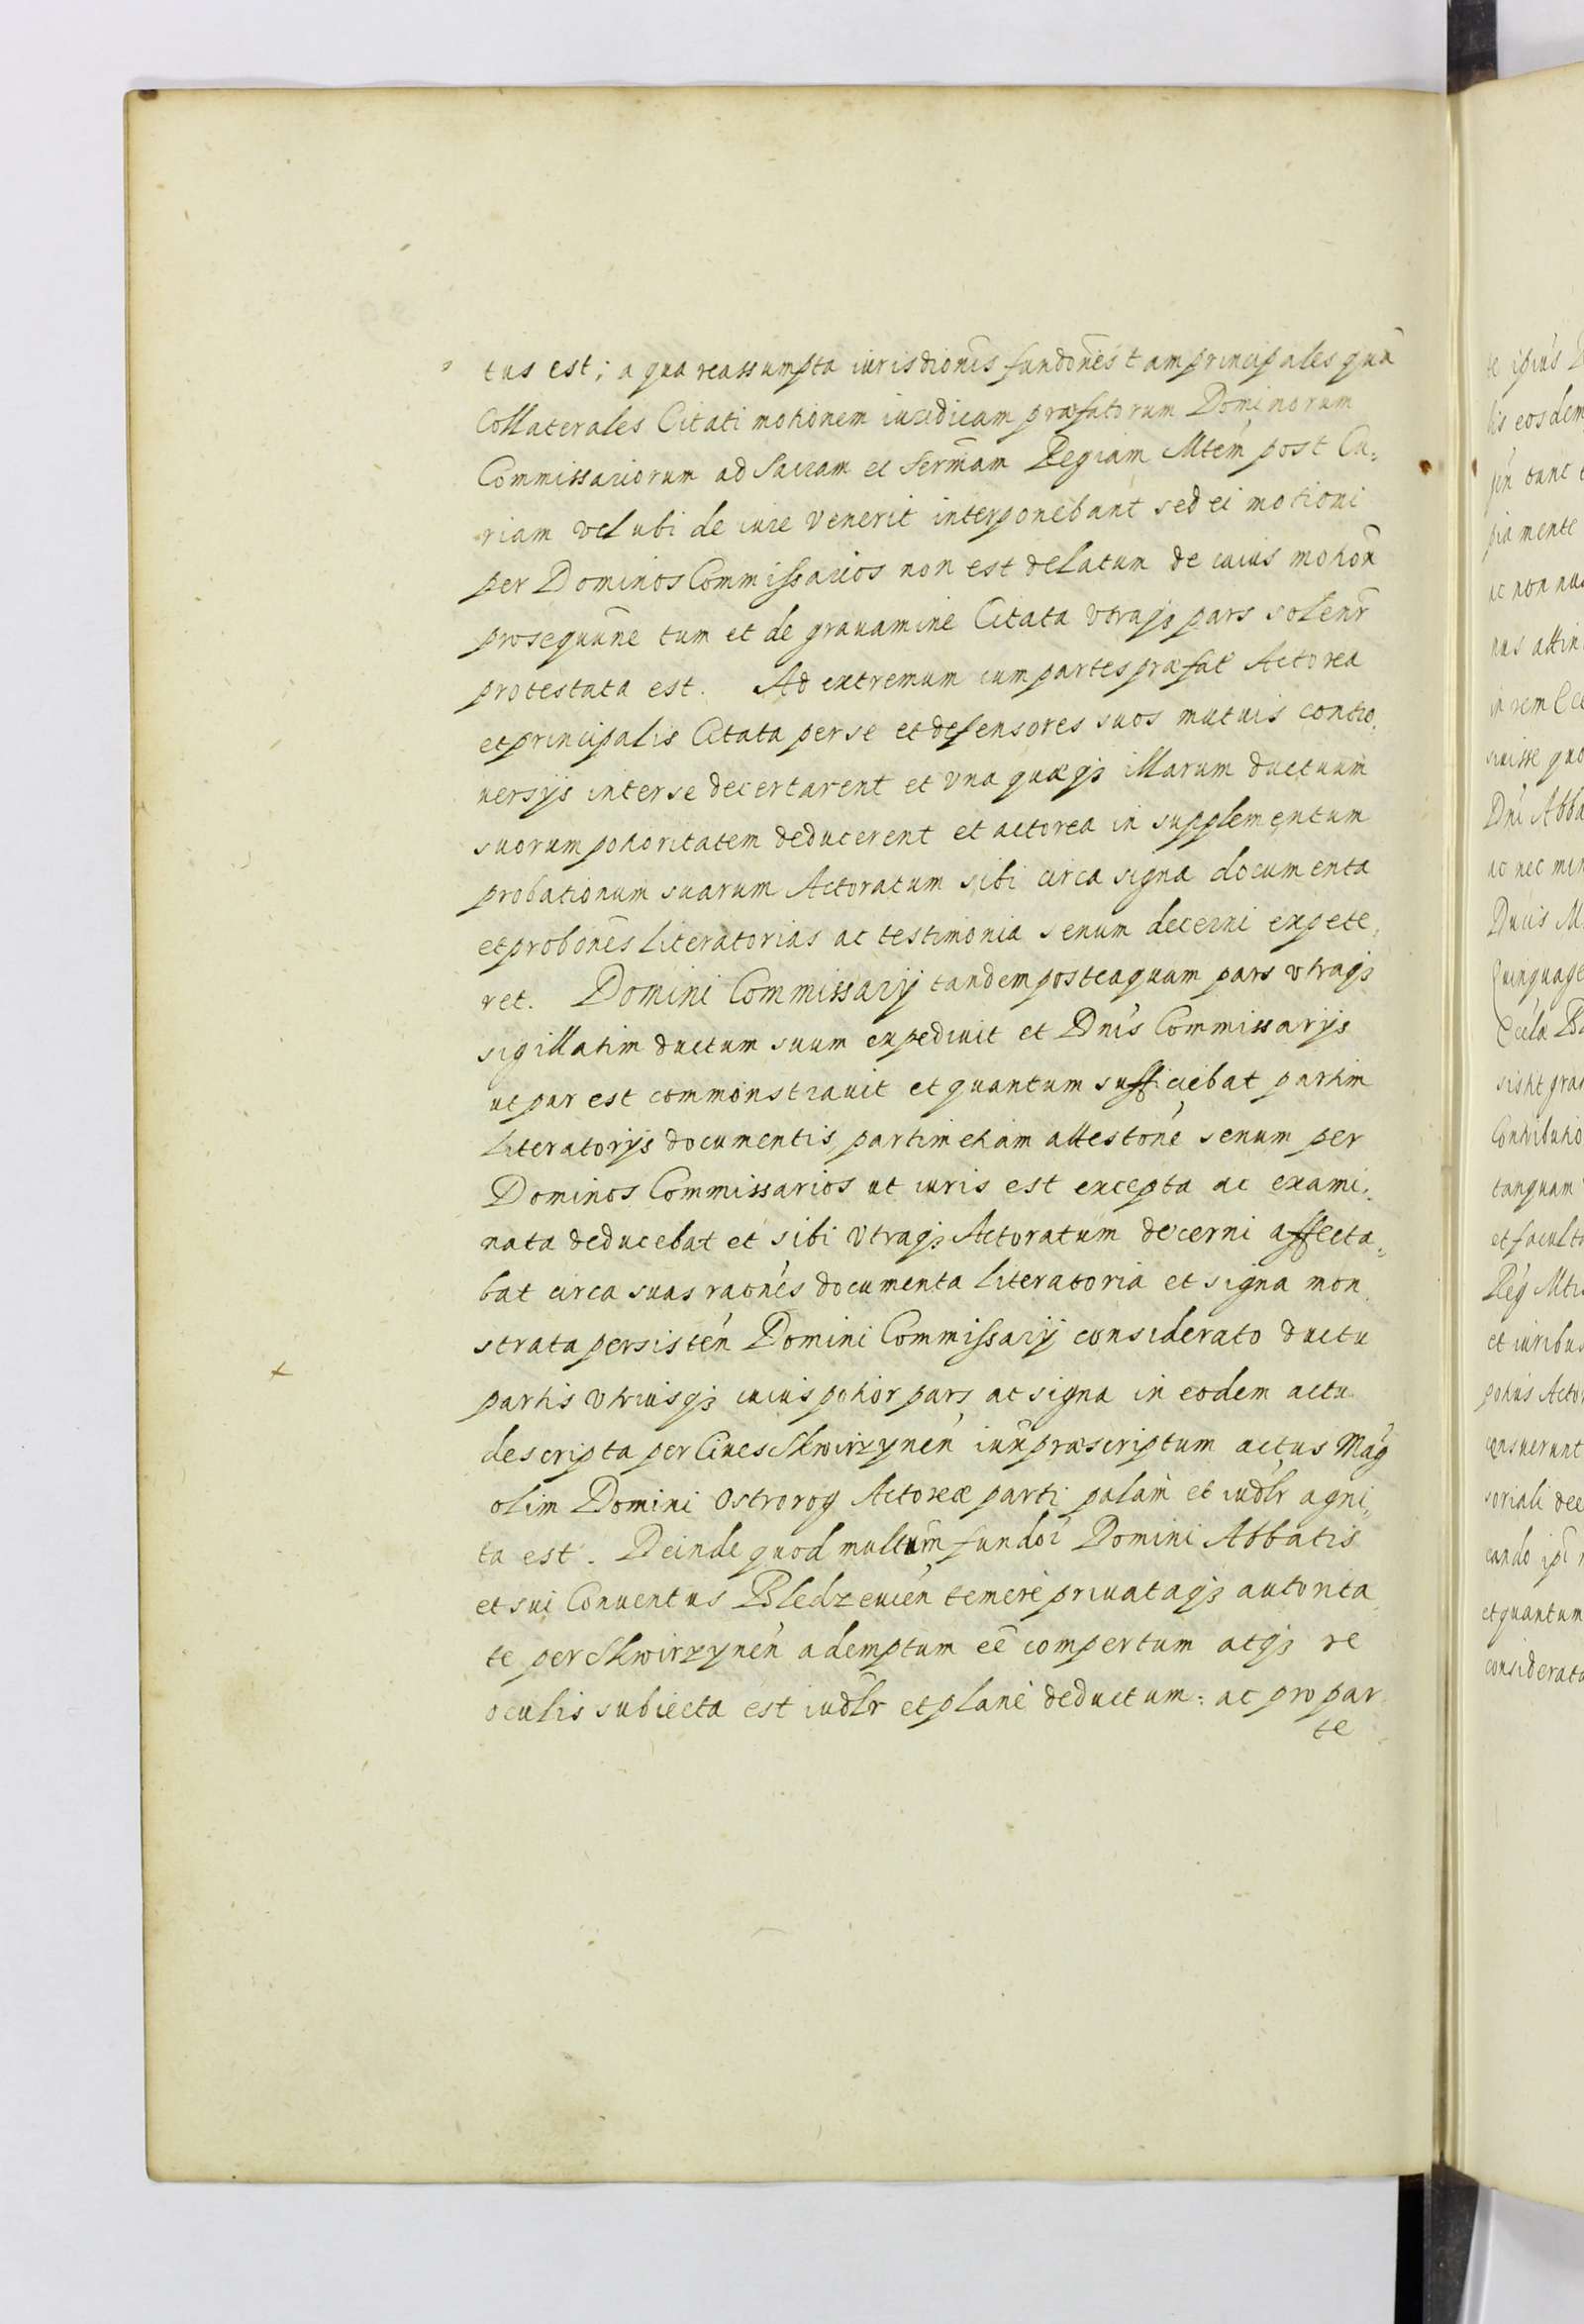 tus est; a qua reassumpta iurisdionis fundones tam principales quā
Collaterales Citati motionem iuridicam præfatorum Dominorum
Commissariorum ad Sacram et Sermam Regiam Mtem post Cu,
riam vel ubi de iure venerit interponebant sed ei motioni
per Dominos Commissarios non est delatum de cuius motion
prosequūne tum et de grauamine Citata vtraqз pars solenr
protestata est. Ad extremum cum partes præfat Actorea
et principalis Citata per se et defensores suos mutuis contro,
uersijs inter se decertarent et vna quæqз illarum ductuum
suorum potioritatem deducerent et actorea in supplementum
probationum suarum Actoratum sibi circa signa documenta
et probones literatorias ac testimonia senum decerni expete,
ret. Domini Commissarij tandem posteaquam pars vtraqз
sigillatim ductum suum expediuit et Dnis Commissarijs
ut par est commonstrauit et quantum sufficiebat partim
literatorijs documentis partim etiam attestone senum per
Dominos Commissarios ut iuris est excepta ac exami,
nata deducebat et sibi vtraqз Actoratum decerni affecta,
bat circa suas raones documenta literatoria et signa mon
strata persisten Domini Commissarij considerato ductu
partis vtriusqз cuius potior pars ac signa in eodem actu
descripta per Ciues Skwirzynen iux præscriptum actus Mag
olim Domini Ostrorog Actoreæ parti palam et iudlr agni,
ta est. Deinde quod multum fundoi Domini Abbatis
et sui Conuentus Bledzeuien temere priuataqз autorita
te per Skwirzynen ademptum eē compertum atqз re
oculis subiecta est iudlr et plane deductum: ac pro par
te